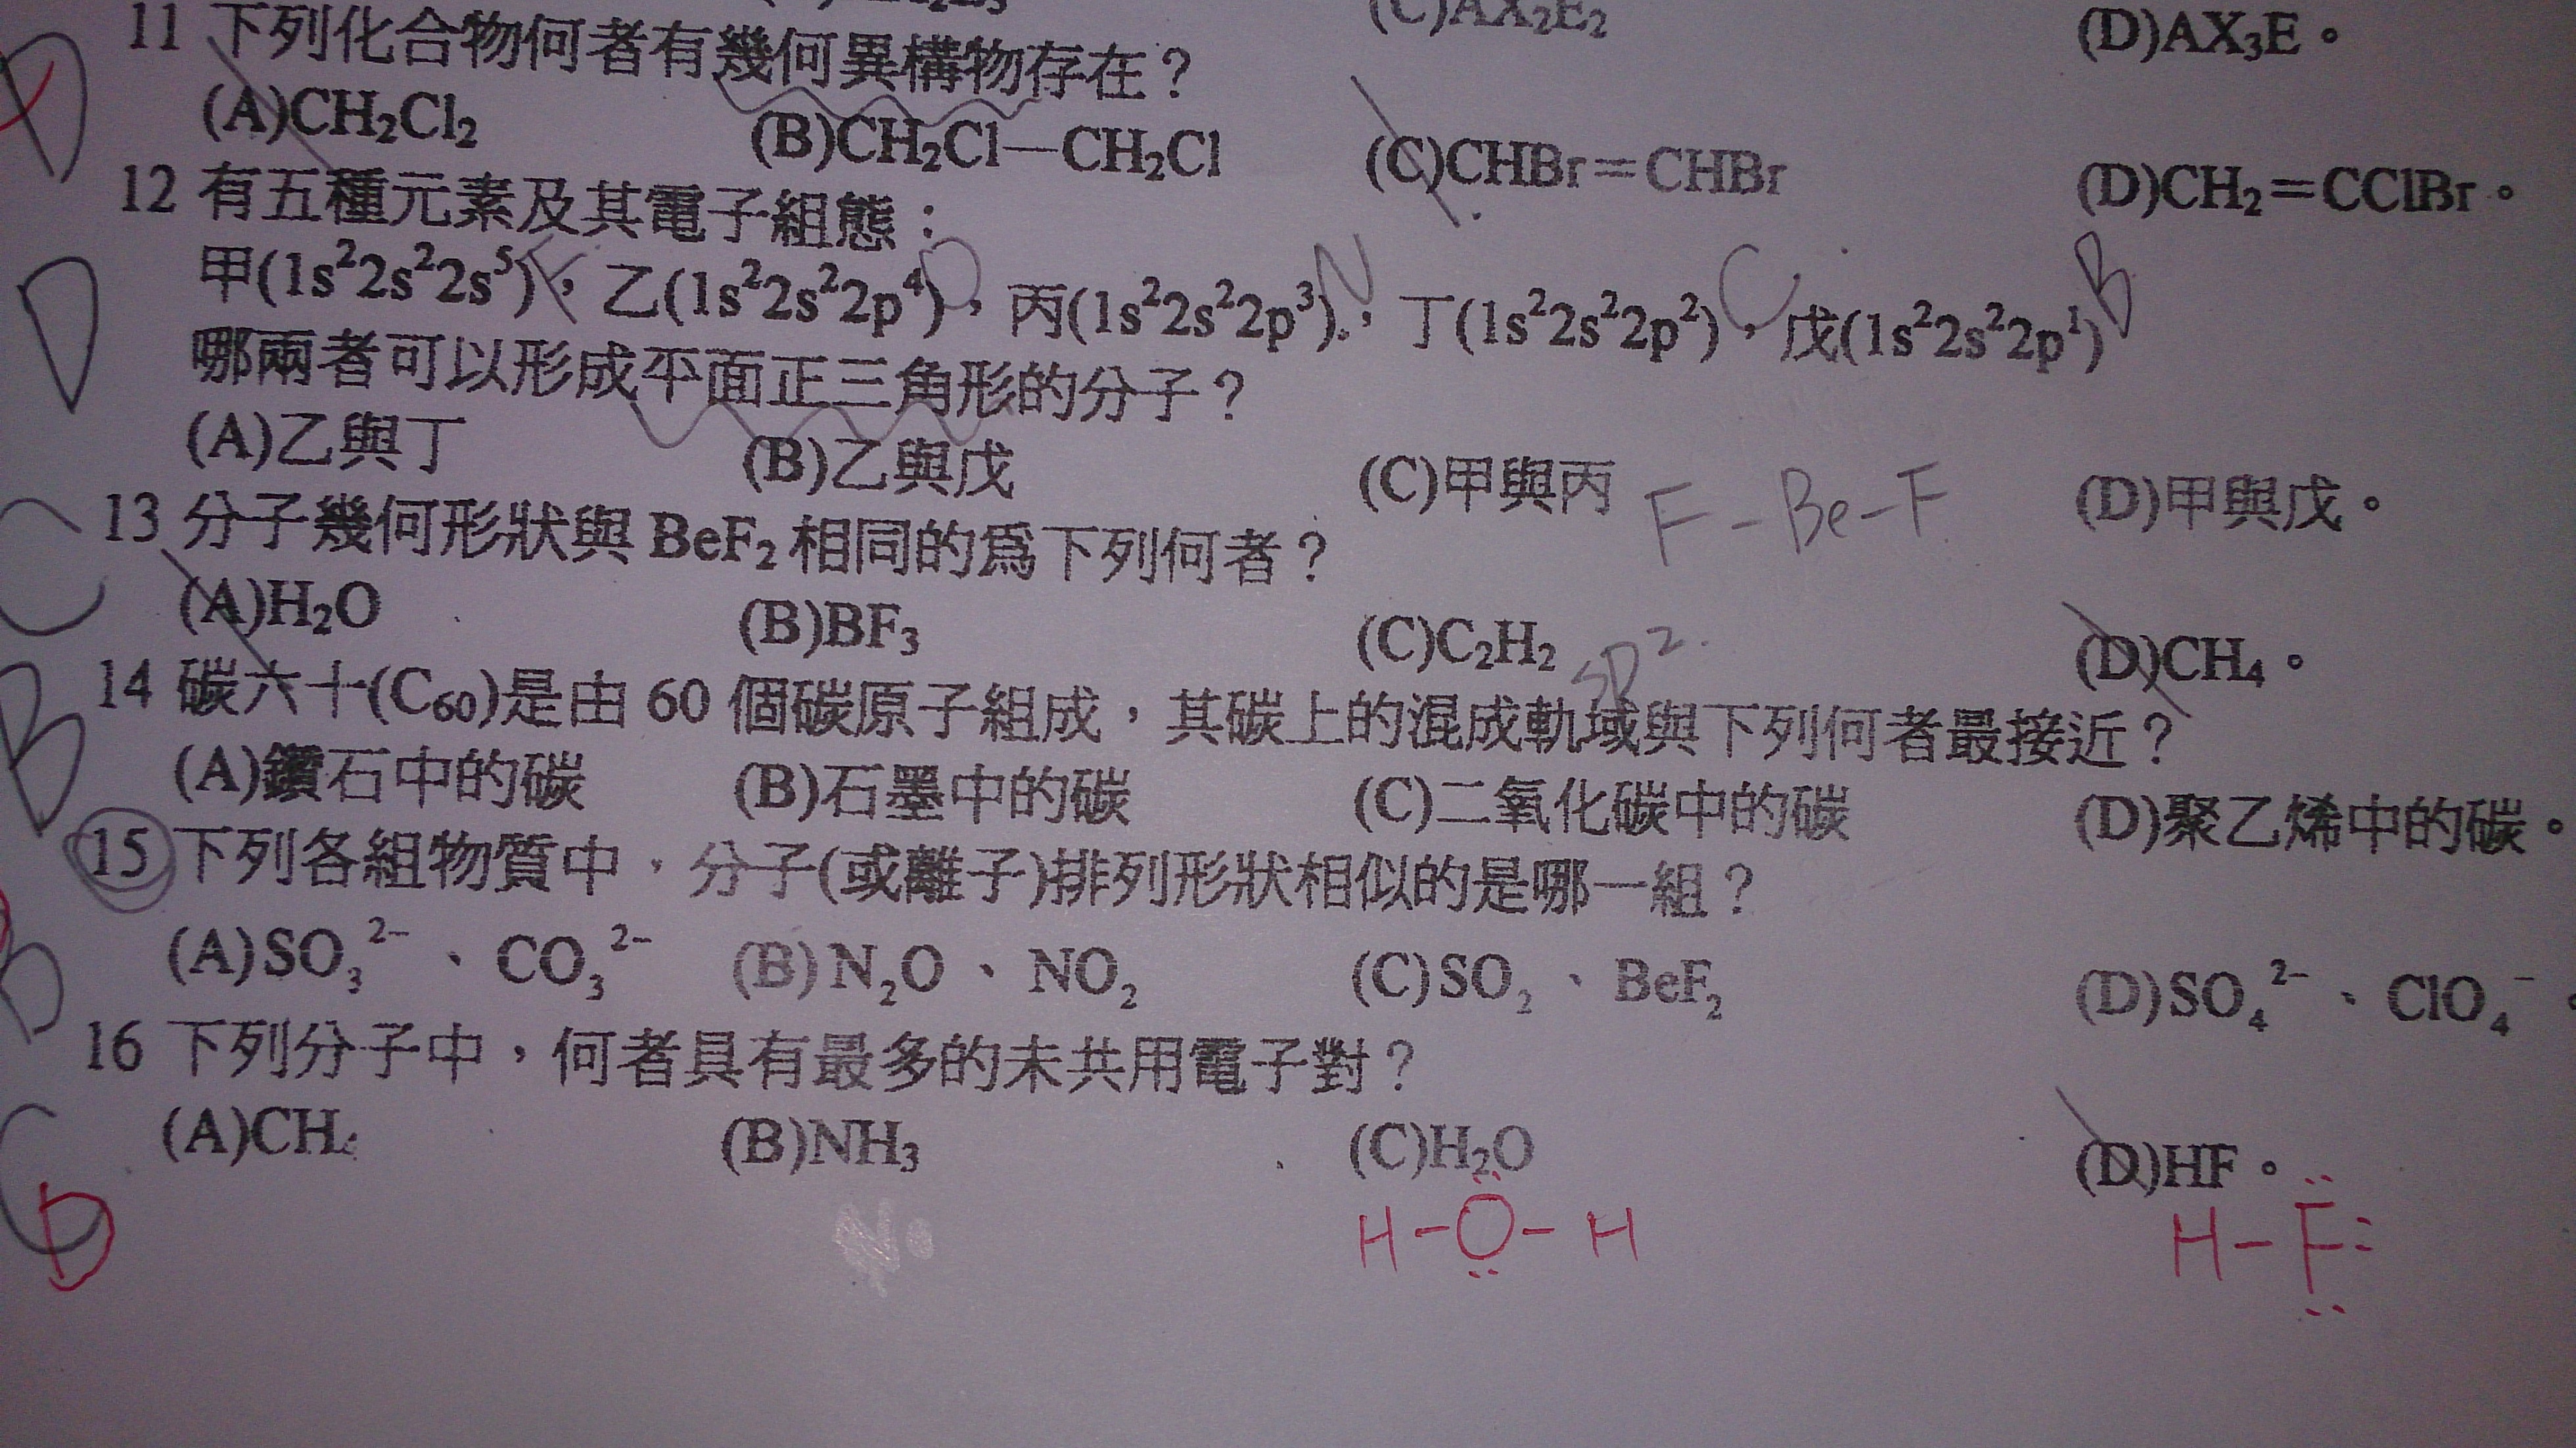 (C)AX₂E₂ (D)AX₃E。
11 下列化合物何者有幾何異構物存在？
(A)CH₂Cl₂ (B)CH₂Cl—CH₂Cl (C)CHBr＝CHBr (D)CH₂＝CClBr。
D
12 有五種元素及其電子組態：
甲(1s²2s²2s⁵)，乙(1s²2s²2p⁴)，丙(1s²2s²2p³)，丁(1s²2s²2p²)，戊(1s²2s²2p¹)
F O N C B
D
哪兩者可以形成平面正三角形的分子？
(A)乙與丁 (B)乙與戊 (C)甲與丙 (D)甲與戊。
F-Be-F
C
13 分子幾何形狀與 BeF₂ 相同的為下列何者？
(A)H₂O (B)BF₃ (C)C₂H₂ (D)CH₄。
sp²
B
14 碳六十(C₆₀)是由 60 個碳原子組成，其碳上的混成軌域與下列何者最接近？
(A)鑽石中的碳 (B)石墨中的碳 (C)二氧化碳中的碳 (D)聚乙烯中的碳。
15 下列各組物質中，分子(或離子)排列形狀相似的是哪一組？
(A)SO₃²⁻、CO₃²⁻ (B)N₂O、NO₂ (C)SO₂、BeF₂ (D)SO₄²⁻、ClO₄⁻。
16 下列分子中，何者具有最多的未共用電子對？
(A)CH₄ (B)NH₃ (C)H₂O (D)HF。
C
D
H-O-H H-F